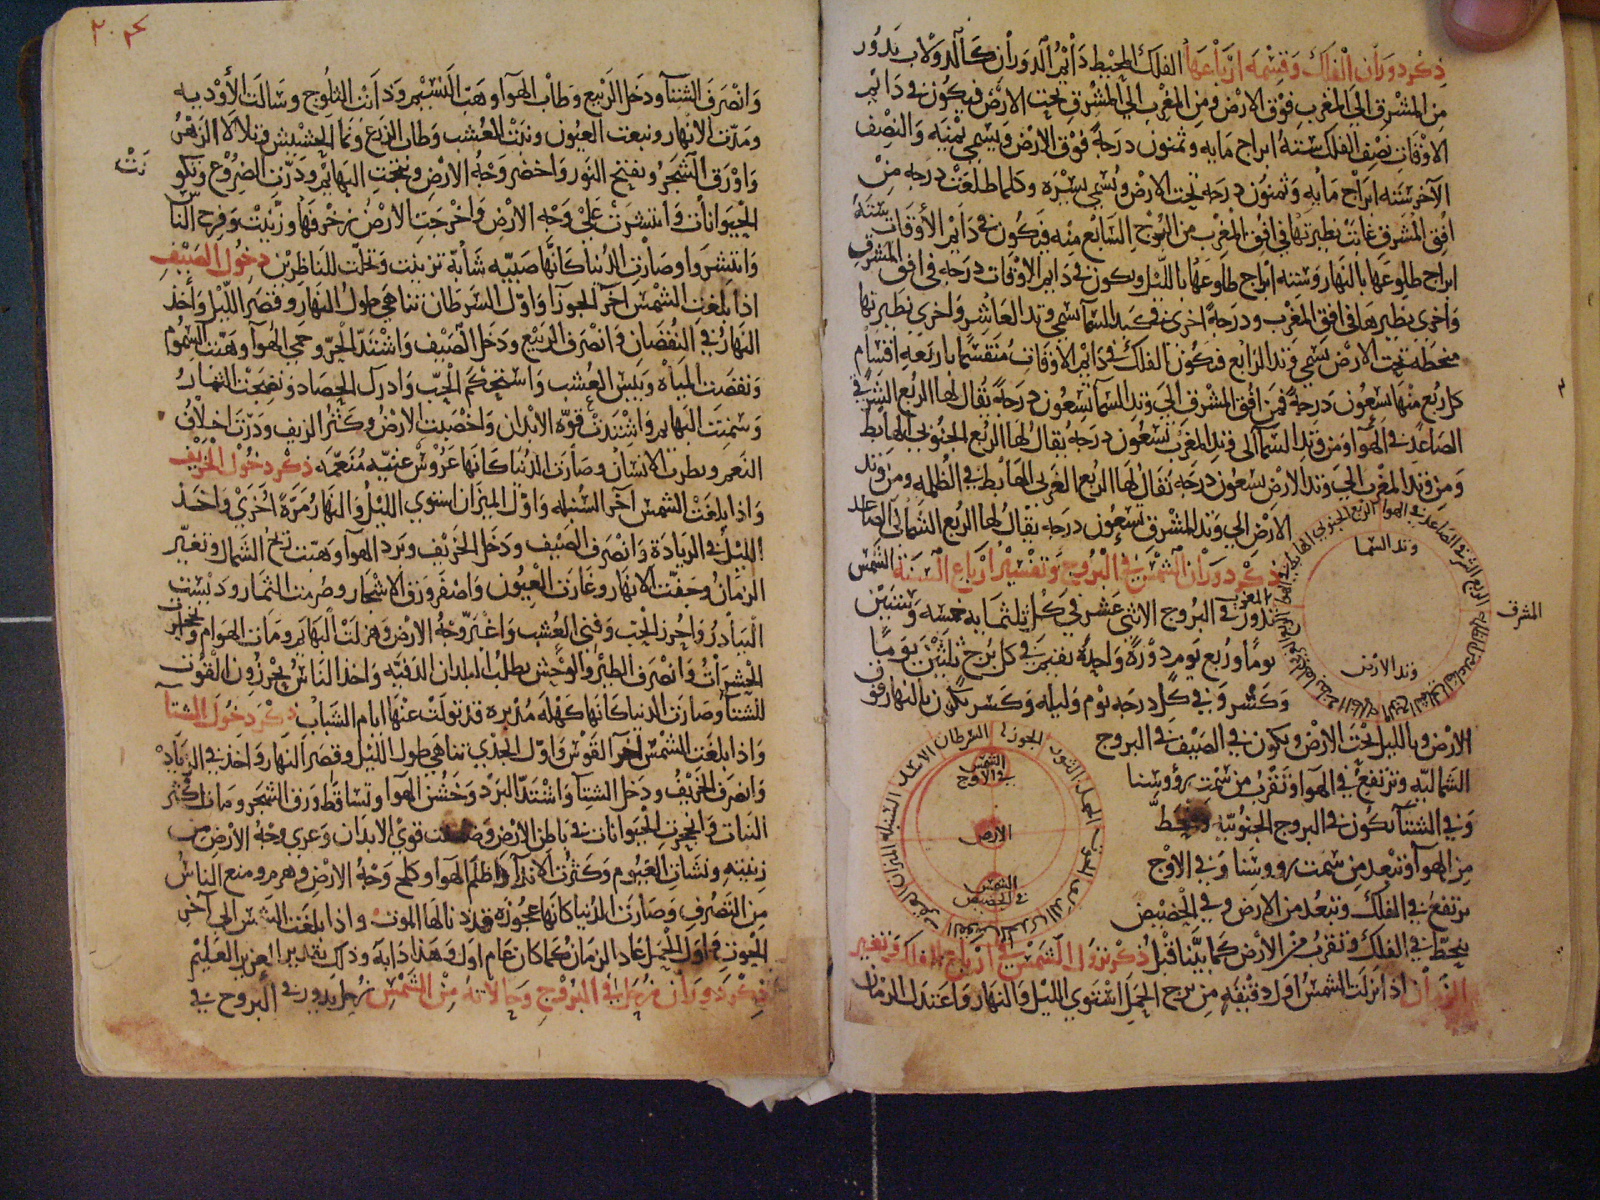 ذكر دوران الفلك وقسمة ارباعها الفلك المحيط دايم الدوران كالدولاب يدور
من المشرق الى المغرب فوق الارض ومن المغرب الى المشرق تحت الارض فيكون في دايم
الاوقات نصف الفلك ستة ابراج مايه وثمنون درجة فوق الارض ويسمى يمنيه والنصف
الآخر سته ابراج مايه وثمنون درجه تحت الارض ويسمى يسره وكلما طلعت درجه من
افق المشرق غابت نظيرتها في افق المغرب من البرج السابع منه فيكون في دايم الأوقات ستة
ابراج طلوعها بالنهار وسته ابراج طلوعها بالليل ويكون في دايم الاوقات درجه في افق المشرق
واخرى نظيرها في افق المغرب ودرجة اخرى في كبد السما تسمى وتد العاشر واخرى نظيرتها
منحطه تحت الارض تسمى وتد الرابع فيكون الفلك في دايم الاوقات منقسما باربعه اقسام
كل ربع منها تسعون درجة فمن افق المشرق الى وتد السما تسعون درجة يقال لها الربع الشرقي
الصاعد في الهوا ومن وتد السما الى وتد المغرب تسعون درجه يقال لها الربع الجنوبي الهابط
ومن وتد المغرب الى وتد الارض تسعون درجه يقال لها الربع الغربي الهابط في الظلمه ومن وتد
الارض الى وتد المشرق تسعون درجه يقال لها الربع الشمالي الصاعد
وتد السما
المشرق
المغرب
وتد الارض
ذكر دوران الشمس في البروج وتفسير ارباع السنة الشمس
تدور في البروج الاثنى عشر في كل ثلثمايه خمسه وستين
يوما وربع يوم دورة واحدة تقيم في كل برج ثلثين يوما
وكسر وفي كل درجه يوم وليله وكسر يكون بالنهار فوق
الارض وبالليل تحت الارض ويكون في الصيف في البروج
الشماليه وترتفع في الهوا وتقرب من سمت رؤوسنا
وفي الشتا تكون في البروج الجنوبيه وتنحط
من الهوا وتبعد من سمت رووسنا وفي الاوج
ترتفع في الفلك وتبعد من الارض وفي الحضيض
ينحط في الفلك وتقرب من الارض كما بينا قبل ذكر نزول الشمس في ارباع الفلك وتغير
الزمان اذا نزلت الشمس اول دقيقه من برج الحمل استوى الليل والنهار واعتدل الزمان
الحمل الثور الجوزا السرطان الاسد السنبله الميزان العقرب القوس الجدي الدلو الحوت
الشمس في الاوج
الارض
الشمس في الحضيض
وانصرف الشتا ودخل الربيع وطاب الهوا وهب النسيم وذابت الثلوج وسالت الأوديه
ومدت الانهار ونبعت العيون ونبت العشب وطال الزرع ونما الحشيش وتلالا الزهر
واورق الشجر وتفتح النور واخضر وجه الارض ونتجت البهايم ودرت الضروع وتكو
نت
الحيوانات وانتشرت على وجه الارض واخرجت الارض زخرفها وزينت وفرح النا
وانتشروا وصارت الدنيا كانها صبيه شابة تزينت وتجلت للناظرين دخول الصيف
اذا بلغت الشمس آخر الجوزا واول السرطان تناهى طول النهار وقصر الليل واخذ
النهار في النقصان وانصرف الربيع ودخل الصيف واشتد الحر وحمي الهوا وهبت السموم
ونقصت المياه ويبس العشب واستحكم الحب وادرك الحصاد ونضجت الثمار
وسمنت البهايم واشتدت قوة الابدان واخصبت الارض وكثر الريف ودرت اخلاف
النعم وبطر الانسان وصارت الدنيا كانها عروس غنيه منعمه ذكر دخول الخريف
واذا بلغت الشمس آخر السنبله واول الميزان استوي الليل والنهار مرة اخرى واخذ
الليل في الزيادة وانصرف الصيف ودخل الخريف وبرد الهوا وهبت ريح الشمال وتغير
الزمان وجفت الانهار وغارت العيون واصفر ورق الاشجار وصرمت الثمار وديست
البيادر واحرز الحب وفني العشب واغبر وجه الارض وهزلت البهايم ومات الهوام وانجحر
الحشرات وانصرف الطير والوحش يطلب البلدان الدفيه واخذ الناس يحرزون القوت
للشتا وصارت الدنيا كانها كهله مدبره قد تولت عنها ايام الشباب ذكر دخول الشتا
واذا بلغت الشمس آخر القوس واول الجدي تناهى طول الليل وقصر النهار واخذ في الزياد
وانصرف الخريف ودخل الشتا واشتد البرد وخشن الهوا وتساقط ورق الشجر ومات اكثر
النبات وانجحرت الحيوانات في باطن الارض وضعفت قوي الابدان وعري وجه الارض من
زينته ونشات الغيوم وكثرت الاندا واظلم الهوا وكلح وجه الارض وهرم ومنع الناس
من التصرف وصارت الدنيا كانها عجوزة قد دنا لها الموت واذا بلغت الشمس الى آخر
الحوت واول الحمل عاد الزمان كما كان عام اول وهذا دابه وذلك تقدير العزيز العليم
ذكر دوران زحل في البروج وحالاته من الشمس زحل يدور في البروج في